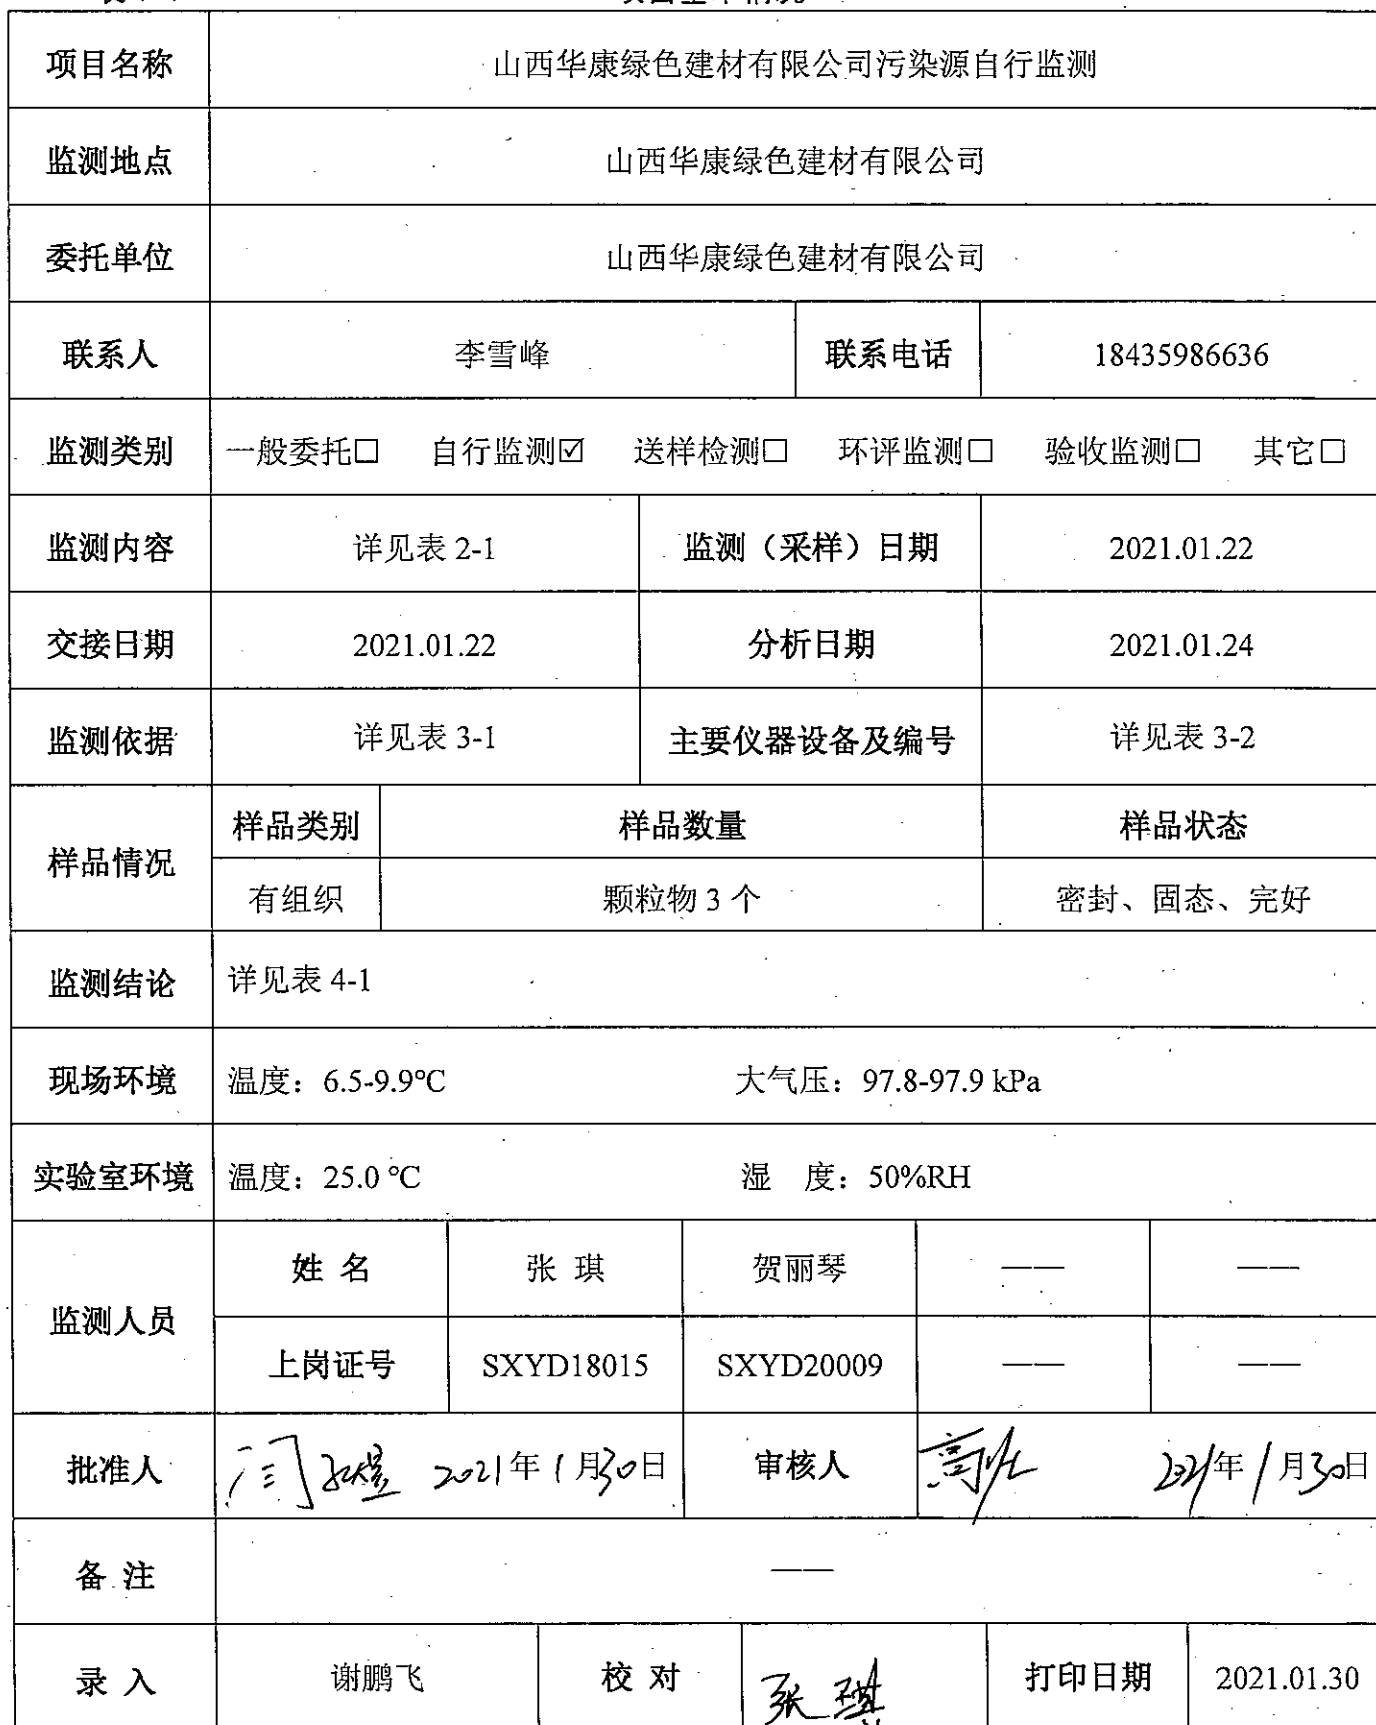 项目名称 山西华康绿色建材有限公司污染源自行监测
监测地点 山西华康绿色建材有限公司
委托单位 山西华康绿色建材有限公司
联系人 李雪峰 联系电话 18435986636
监测类别 一般委托□ 自行监测☑ 送样检测□ 环评监测□ 验收监测□ 其它□
监测内容 详见表 2-1 监测（采样）日期 2021.01.22
交接日期 2021.01.22 分析日期 2021.01.24
监测依据 详见表 3-1 主要仪器设备及编号 详见表 3-2
样品情况 样品类别 样品数量 样品状态
有组织 颗粒物 3 个 密封、固态、完好
监测结论 详见表 4-1
现场环境 温度：6.5-9.9℃ 大气压：97.8-97.9 kPa
实验室环境 温度：25.0 ℃ 湿 度：50%RH
监测人员 姓 名 张 琪 贺丽琴 —— ——
上岗证号 SXYD18015 SXYD20009 —— ——
批准人 2021年1月30日 审核人 2021年1月30日
备 注 ——
录 入 谢鹏飞 校 对 张琪 打印日期 2021.01.30